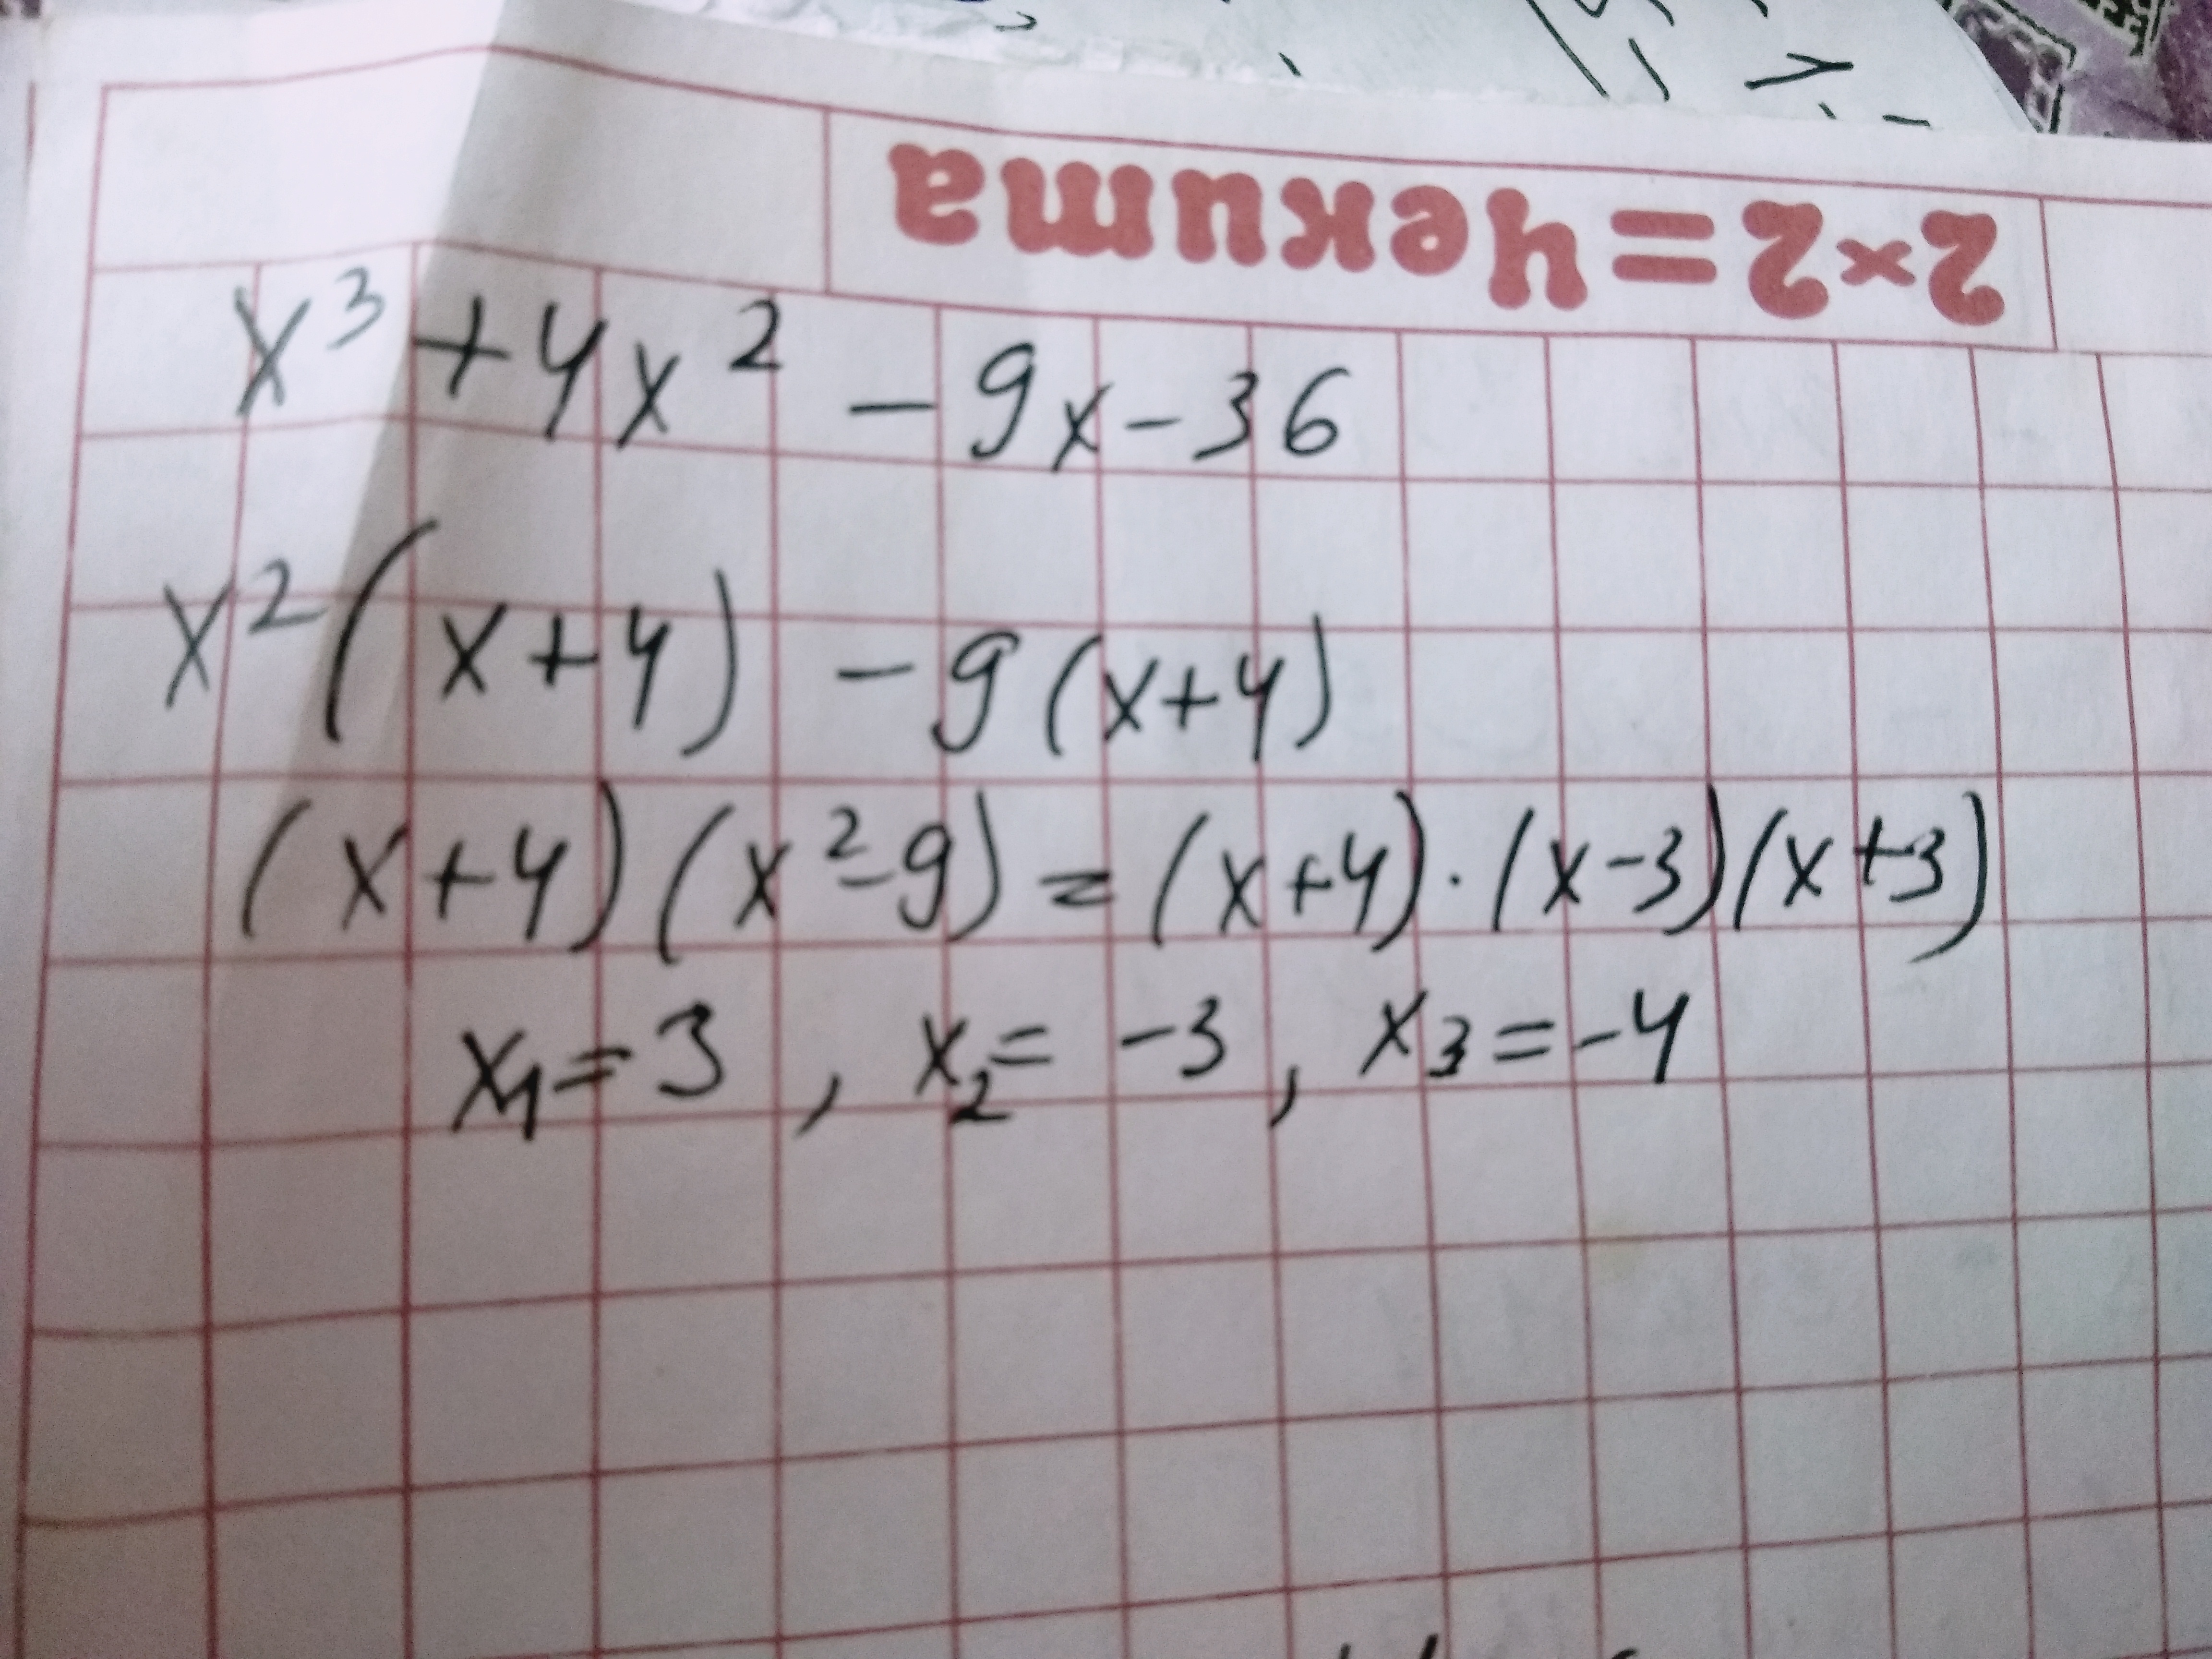 2×2=Чекита
x³ + 4x² - 9x - 36
x² (x+4) - 9 (x+4)
(x+4) (x²-9) = (x+4) · (x-3) (x+3)
x₁ = 3 , x₂ = -3 , x₃ = -4